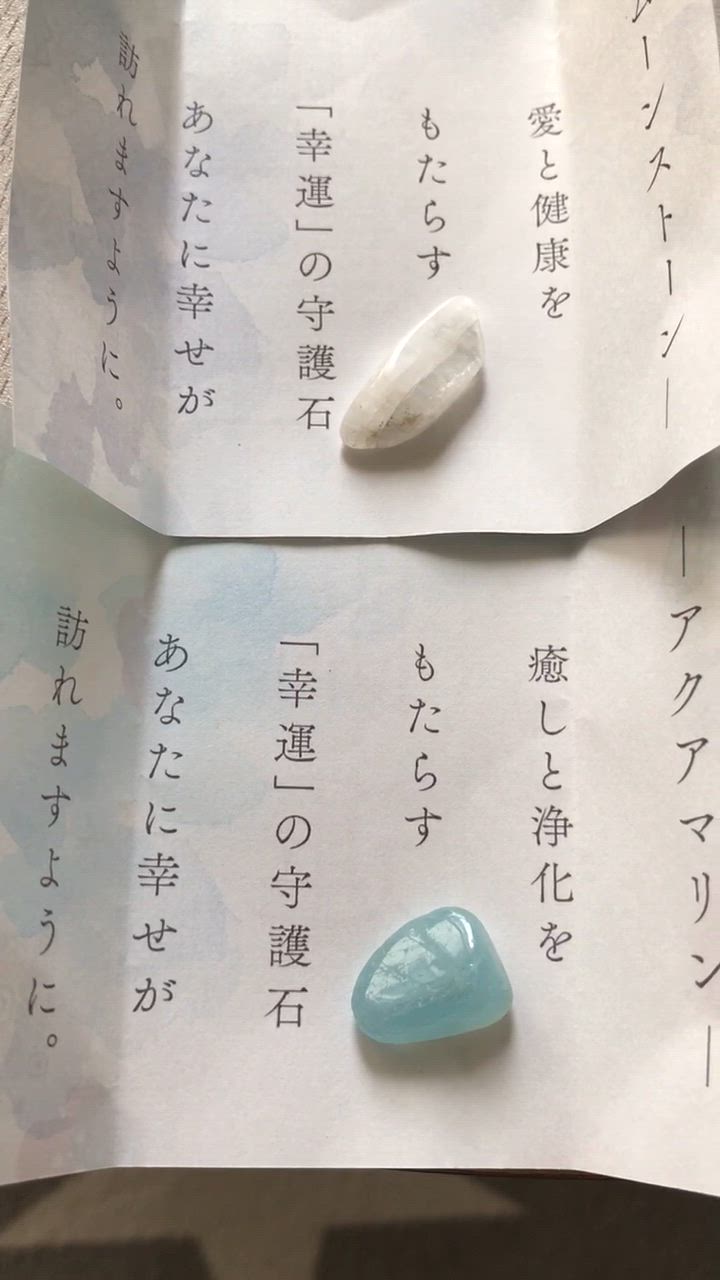 ムーンストーン―
愛と健康を
もたらす
「幸運」の守護石
あなたに幸せが
訪れますように。
―アクアマリン―
癒しと浄化を
もたらす
「幸運」の守護石
あなたに幸せが
訪れますように。